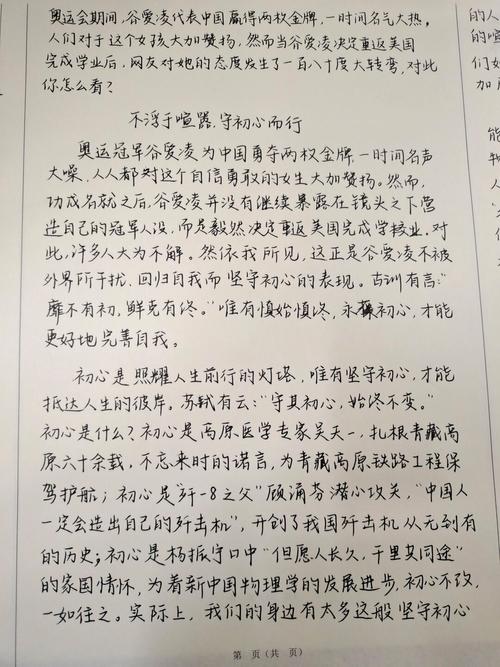 奥运会期间,谷爱凌代表中国赢得两枚金牌,一时间名气大热。
人们对于这个女孩大加赞扬,然而当谷爱凌决定重返美国
完成学业后,网友对她的态度发生了一百八十度大转弯,对此
你怎么看?
不浮于喧嚣,守初心而行
奥运冠军谷爱凌为中国勇夺两枚金牌,一时间名声
大噪,人人都对这个自信勇敢的女生大加赞扬。然而,
功成名就之后,谷爱凌并没有继续暴露在镜头之下营
造自己的冠军人设,而是毅然决定重返美国完成学业。对
此,许多人大为不解。然依我所见,这正是谷爱凌不被
外界所干扰、回归自我而坚守初心的表现。古训有言:“
靡不有初,鲜克有终。”唯有慎始慎终,永葆初心,才能
更好地完善自我。
初心是照耀人生前行的灯塔,唯有坚守初心,才能
抵达人生的彼岸。苏轼有云:“守其初心,始终不变。”
初心是什么?初心是高原医学专家吴天一,扎根青藏高
原六十余载,不忘来时的诺言,为青藏高原铁路工程保
驾护航;初心是“歼-8之父”顾诵芬潜心攻关,“中国人
一定会造出自己的歼击机”,开创了我国歼击机从无到有
的历史;初心是杨振宁口中“但愿人长久,千里共同途”
的家国情怀,为着新中国物理学的发展进步,初心不改,
一如往之。实际上,我们的身边有太多这般坚守初心
第 页(共 页)
的人
的喧
们如
加
能
物